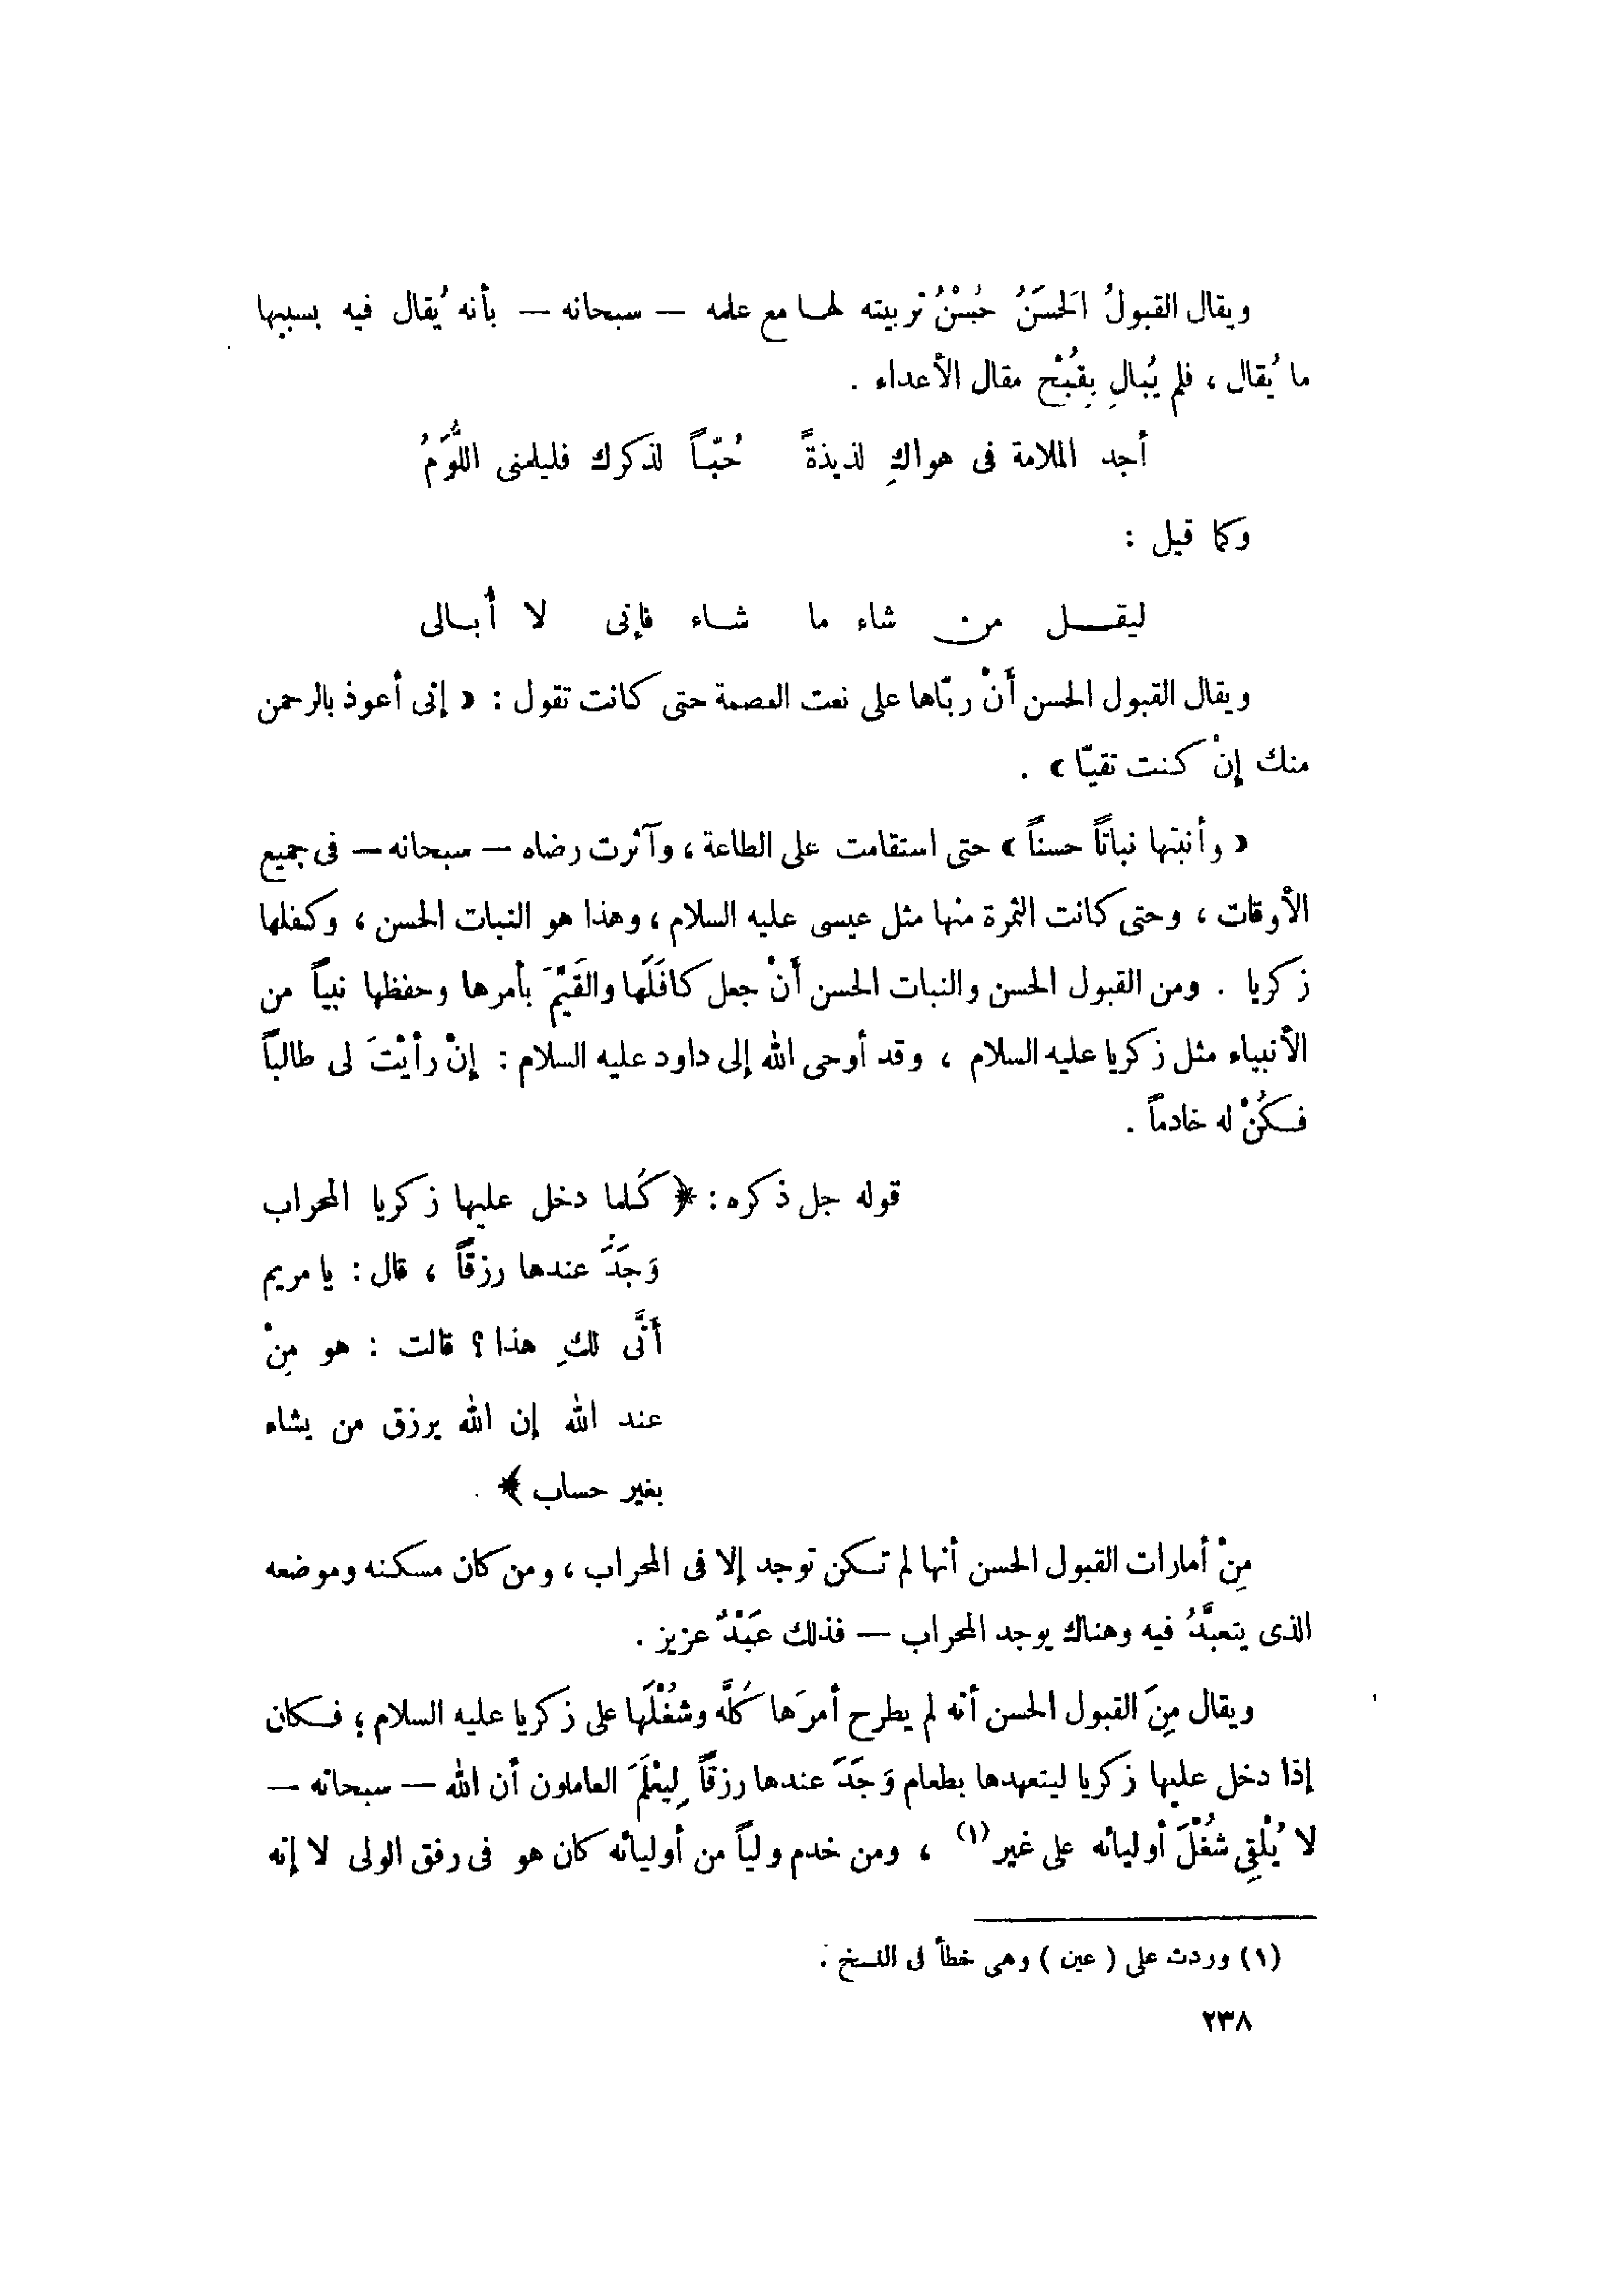 ويقال القبولُ الَحسَنُ حُسْنُ تربيته لها مع علمه — سبحانه — بأنه يُقال فيه بسببها
ما يُقال ، فلم يُبالِ بِقُبْح مقال الأعداء .
أجد الملامة فى هواكِ لذيذةً حُبّاً لذكرك فليلمنى اللُّوَّمُ
وكما قيل :
ليقل من شاء ما شاء فإنى لا أبالى
ويقال القبول الحسن أَنْ ربّاها على نعت العصمة حتى كانت تقول : « إنى أعوذ بالرحمن
منك إنْ كنت تقيّا » .
« وأنبتها نباتاً حسناً » حتى استقامت على الطاعة ، وآثرت رضاه — سبحانه — فى جميع
الأوقات ، وحتى كانت الثمرة منها مثل عيسى عليه السلام ، وهذا هو النبات الحسن ، وكفلها
زكريا . ومن القبول الحسن والنبات الحسن أَنْ جعل كافَلَها والقَيِّمَ بأمرها وحفظها نبياً من
الأنبياء مثل زكريا عليه السلام ، وقد أوحى الله إلى داود عليه السلام : إنْ رأيْتَ لى طالباً
فكُنْ له خادماً .
قوله جل ذكره : ﴿ كُلما دخل عليها زكريا المحراب
وَجَدَ عندها رزقاً ، قال : يا مريم
أَنَّى لكِ هذا ؟ قالت : هو مِنْ
عند الله إن الله يرزق من يشاء
بغير حساب ﴾ .
مِنْ أمارات القبول الحسن أنها لم تكن توجد إلا فى المحراب ، ومن كان مسكنه وموضعه
الذى يتعبَّدُ فيه وهناك يوجد المحراب — فذلك عَبْدٌ عزيز .
ويقال مِنَ القبول الحسن أنه لم يطرح أمرَها كُلَّه وشُغْلَها على زكريا عليه السلام ؛ فكان
إذا دخل عليها زكريا ليتعهدها بطعام وَجَدَ عندها رزقاً لِيعْلَمَ العاملون أن الله — سبحانه —
لا يُلْقِى شُغْلَ أوليائه على غير (١) ، ومن خدم ولياً من أوليائه كان هو فى رفق الولى لا إنه
(١) وردت على ( عين ) وهى خطأ فى النسخ .
٢٣٨